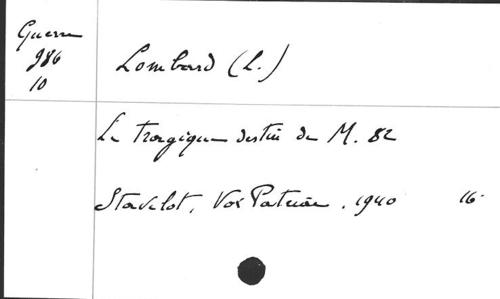 Guerre
986
10
Lombard (L.)
Le tragique destin du M. 82
Stavelot, Vox Patriae, 1940 16°